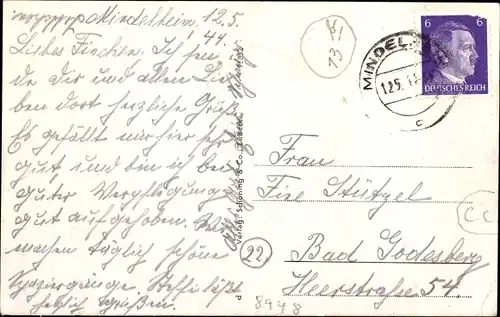 Mindelheim, 12.5.
44.
Liebes Fiechen. Ich sen
de Dir und allen Lie
ben dort herzliche Grüße
Es gefällt mir hier sehr
gut und bin ich bei
guter Verpflegung
gut aufgehoben. Wir
machen täglich schöne
Spaziergänge.
herzlich grüßen.
Verlag: Schöning & Co., Lübeck
d
13
MINDEL
12.5.
c
6 6
DEUTSCHES REICH
Frau
Fine Stützel
CC
22
Bad Godesberg
Heerstraße 54.
8948